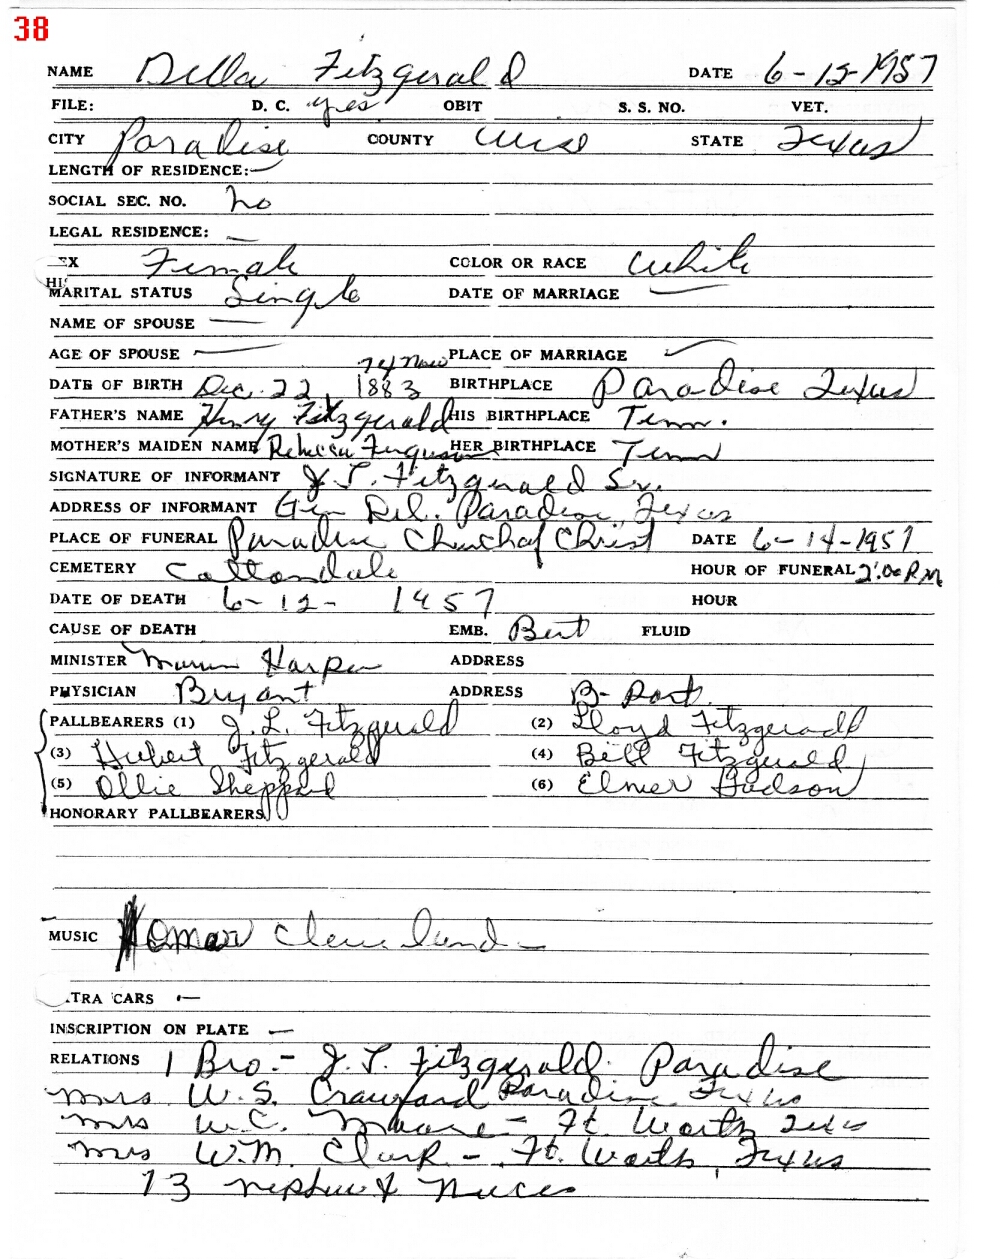 38
NAME Della Fitzgerald DATE 6-12-1957
FILE: D. C. yes OBIT S. S. NO. VET.
CITY Paradise COUNTY Wise STATE Texas
LENGTH OF RESIDENCE: —
SOCIAL SEC. NO. no
LEGAL RESIDENCE: —
EX Female COLOR OR RACE White
HI
MARITAL STATUS Single DATE OF MARRIAGE —
NAME OF SPOUSE —
AGE OF SPOUSE — PLACE OF MARRIAGE —
74 now
DATE OF BIRTH Dec. 22, 1883 BIRTHPLACE Paradise Texas
FATHER'S NAME Henry Fitzgerald HIS BIRTHPLACE Tenn.
MOTHER'S MAIDEN NAME Rebecca Ferguson HER BIRTHPLACE Tenn
SIGNATURE OF INFORMANT J. T. Fitzgerald Sr.
ADDRESS OF INFORMANT Gen Del. Paradise, Texas
PLACE OF FUNERAL Paradise Church of Christ DATE 6-14-1957
CEMETERY Cottondale HOUR OF FUNERAL 2:00 P.M.
DATE OF DEATH 6-12- 1957 HOUR
CAUSE OF DEATH EMB. Bert FLUID
MINISTER Harper ADDRESS
PHYSICIAN Bryant ADDRESS B-Port.
PALLBEARERS (1) J. L. Fitzgerald (2) Lloyd Fitzgerald
(3) Hubert Fitzgerald (4) Bill Fitzgerald
(5) Ollie Sheppard (6) Elmer Hudson
HONORARY PALLBEARERS
MUSIC Homar Cleveland —
TRA CARS —
INSCRIPTION ON PLATE —
RELATIONS 1 Bro. - J. T. Fitzgerald. Paradise
Mrs W. S. Crawford Paradise, Texas
Mrs W. C. Moore - Ft. Worth Texas
Mrs W. M. Clark - Ft. Worth, Texas
13 nephew & Nieces